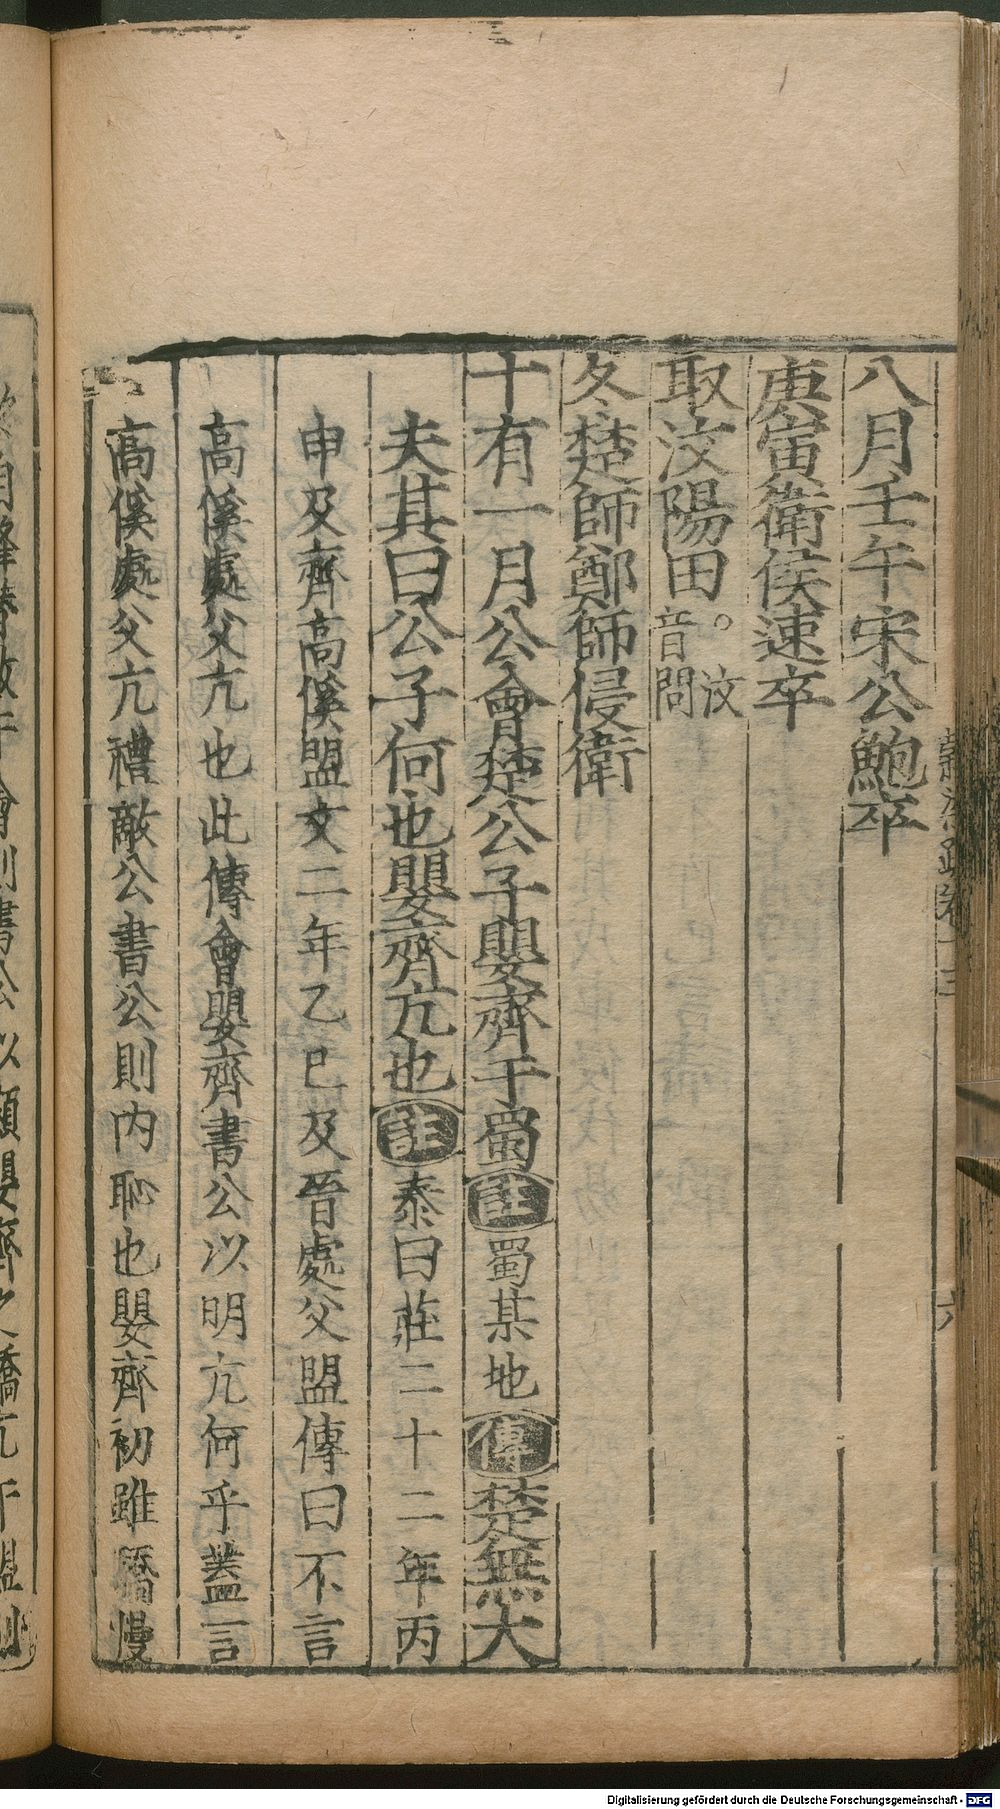 八月壬午宋公鮑卒
庚寅衛侯速卒
取汶陽田。汶音問
冬楚師鄭師侵衛
十有一月公會楚公子嬰齊于蜀註蜀某地傳楚無大
夫其曰公子何也嬰齊亢也註泰曰莊二十二年丙
申及齊高傒盟文二年乙巳及晉處父盟傳曰不言
高傒處父亢也此傳會嬰齊書公以明亢何乎蓋言
高傒處父亢禮敵公書公則内恥也嬰齊初雖驕慢
六
Digitalisierung gefördert durch die Deutsche Forschungsgemeinschaft - DFG